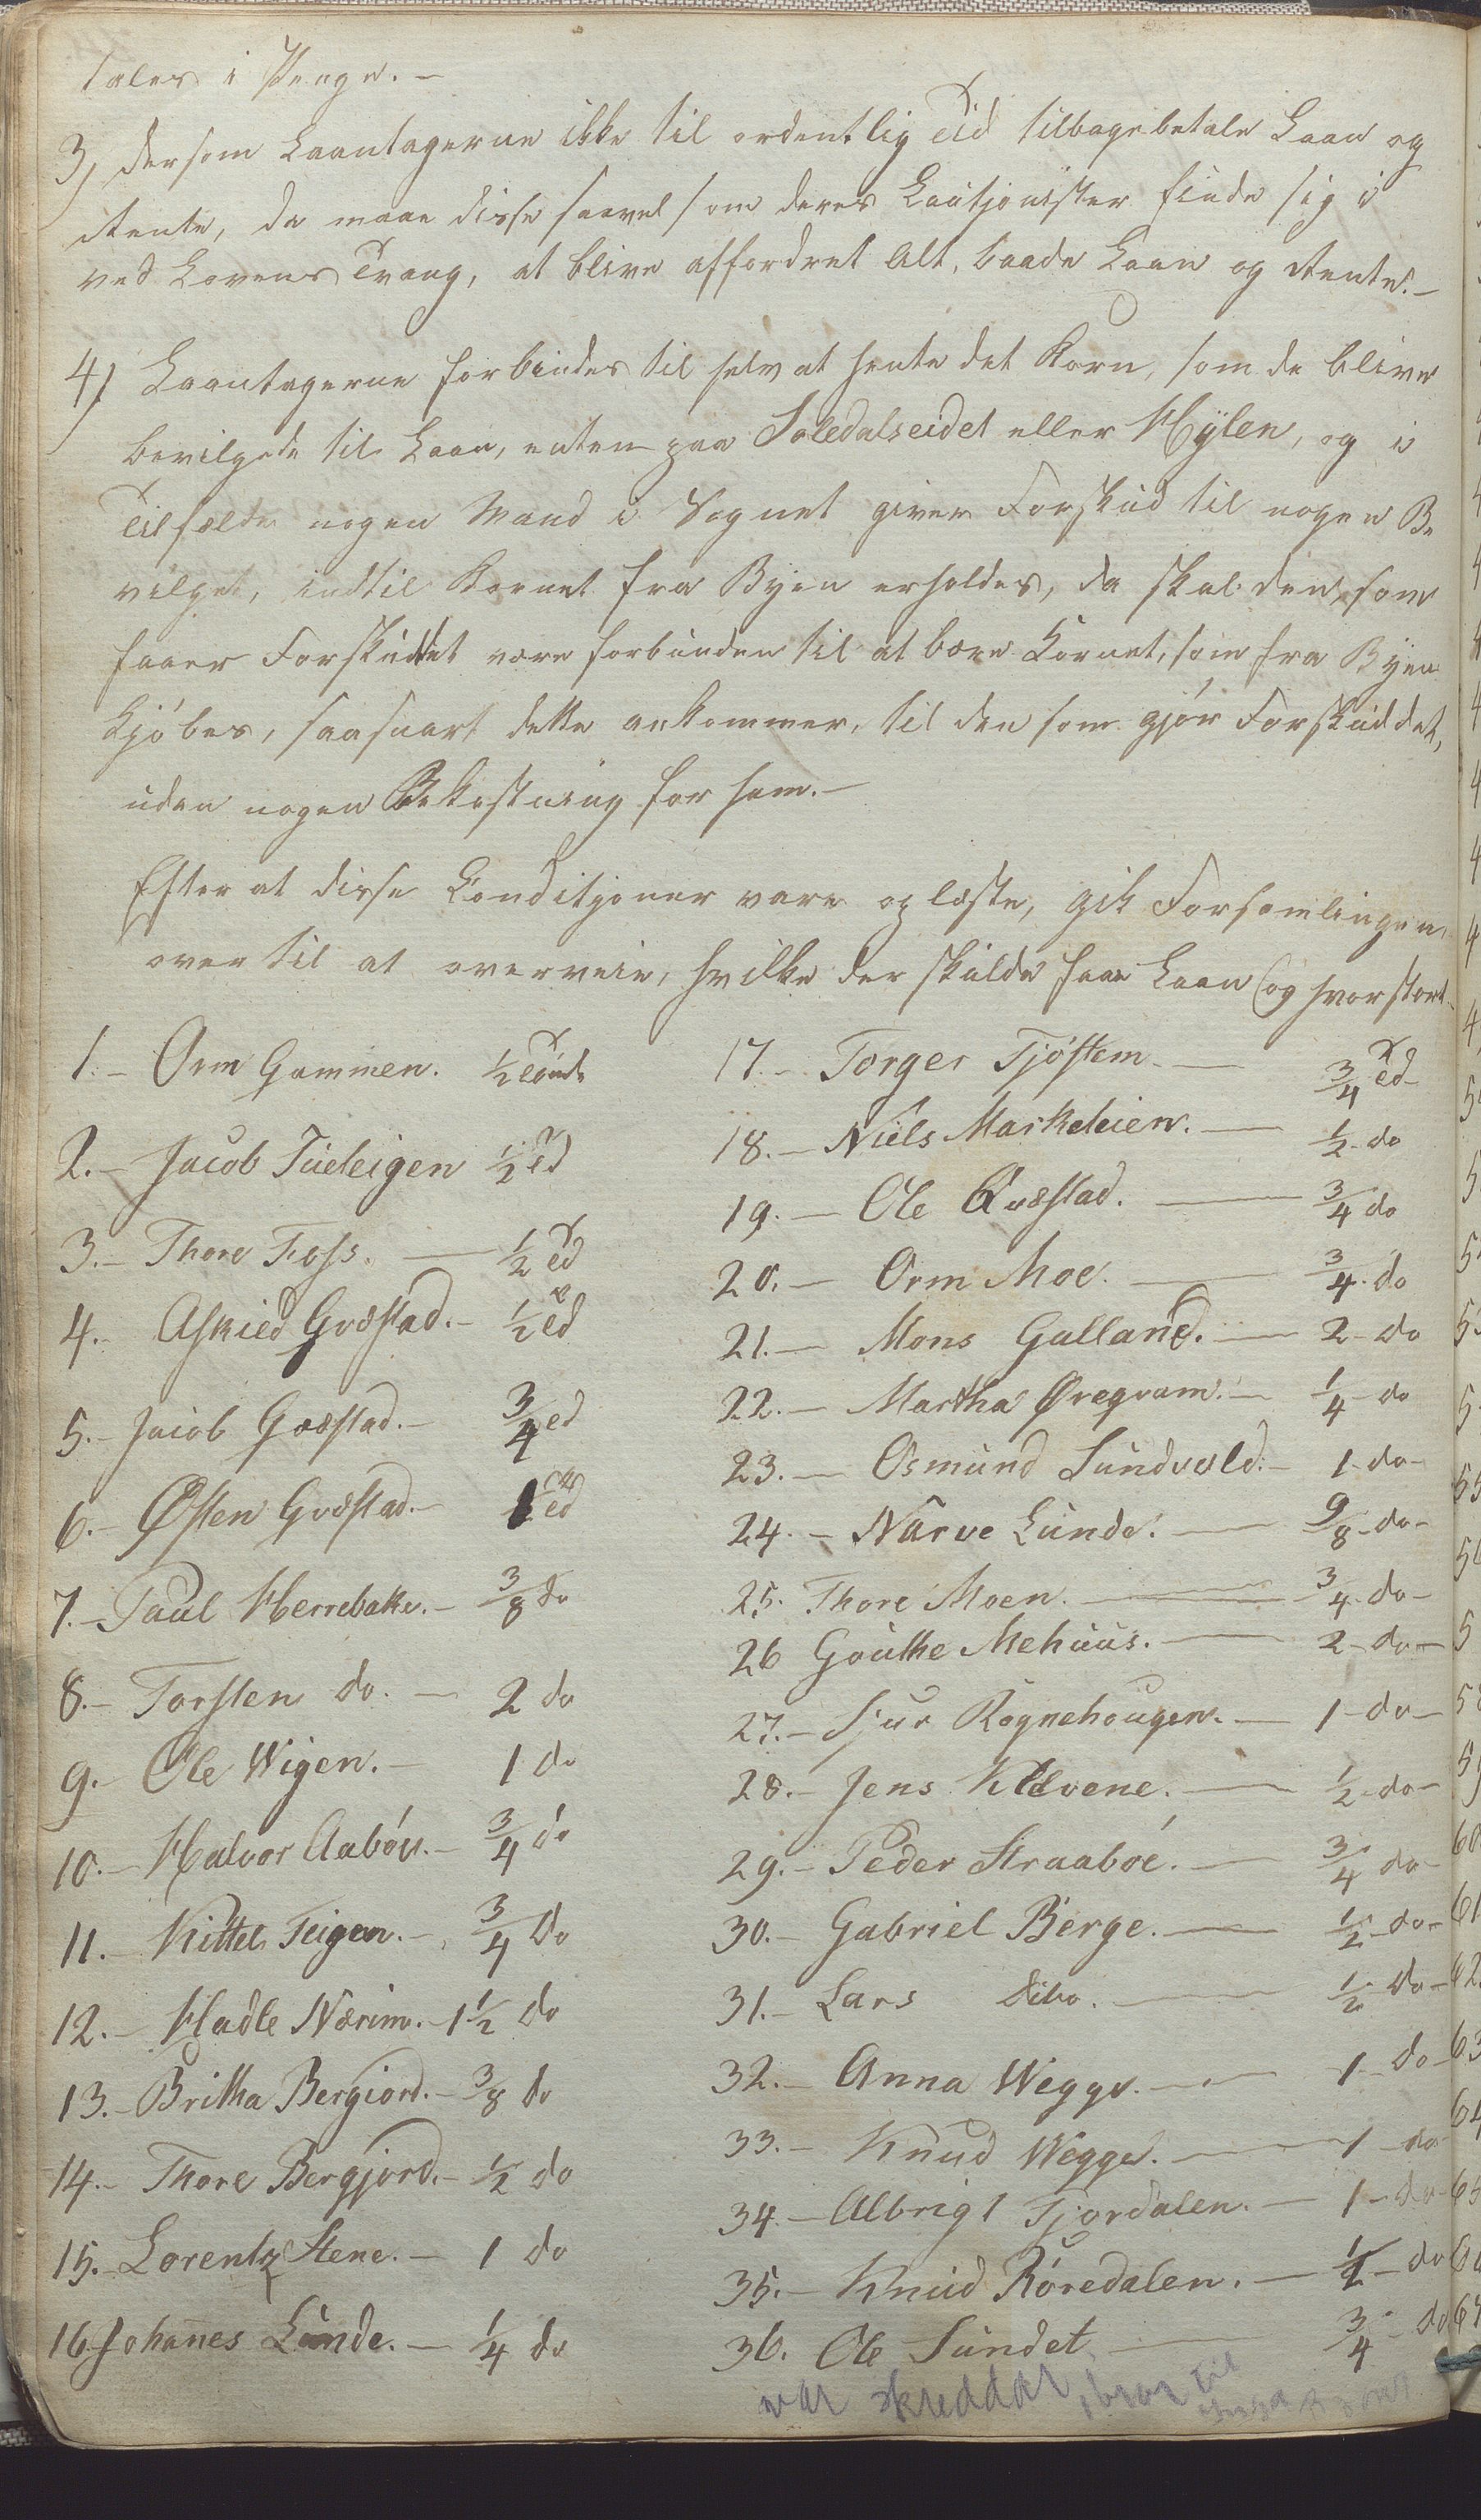 tales i Penge. –
3, dersom Laantagerne ikke til ordentlig Tid tilbagebetale Laan og
Rente, da maae disse saavel som deres Cautjonister finde sig i
ved Lovens Tvang, at blive affordret Alt, baade Laan og Rente. –
4, Laantagerne forbindes til selv at hente det Korn, som de blive
bevilgede til Laan, enten paa Soledalseidet eller Hylen, og i
Tilfælde nogen Mand i Sognet giver Forskud til nogen Be
vilget, indtil Kornet fra Byen erholdes, da skal den, som
faaer Forskuddet være forbunden til at bære Kornet, som fra Byen
kjöbes, saasnart dette ankommer, til den som gjör Forskuddet,
uden nogen Bekostning for ham. –
Efter at disse Conditjoner vare oplæste, gik Forsamlingen
over til at overveie, hvilke der skulde faae Laan og hvor stort.
1. – Orm Gammen. 1/2 Tönde
2. – Jacob Tueteigen 1/2 Td
3. – Thore Foss. – 1/2 Td
4. – Askied Qvæstad. – 1/2 Td
5. – Jacob Qvæstad. – 3/4 Td
6. – Østen Qvæstad. – 1 Td
7. – Paul Herrebakke. – 3/8 do
8. – Torsten do. – 2 do
9. – Ole Wigen. – 1 do
10. – Halvor Aaböe. – 3/4 do
11. – Kittel Teigen. – 3/4 do
12. – Hadle Nærim. – 1 1/2 do
13. – Britha Bergiord. – 3/8 do
14. – Thore Bergjord. – 1/2 do
15. – Lorentz Stene. – 1 do
16. Johannes Lunde. – 1/4 do
17. – Torger Tjöstem – 3/4 Td
18. – Niels Markeleien. – 1/2 do
19. – Ole Qvæstad. – 3/4 do
20. – Orm Moe. – 3/4 do
21. – Mons Galland. – 2 do
22. – Martha Øregvam. – 1/4 do
23. – Osmund Sundvold. – 1 do –
24. – Narve Lunde. – 9/8 do –
25. Thore Moen. – 3/4 do –
26 Gouthe Mehuus. – 2 do –
27. – Sjur Rognehougen. – 1 do –
28. – Jens Klævene. – 1/2 do –
29. – Peder Straaböe. – 3/4 do –
30. – Gabriel Berge. – 1/2 do –
31. – Lars dito. – 1/2 do –
32. – Anna Wegge. – 1 do –
33. – Knud Wegge. – 1 do
34. – Albrigt Fjordalen. – 1 – do
35. – Knud Röredalen. – 1/2 – do
36. Ole Sundet – 3/4 – do
var skreddar, bror til